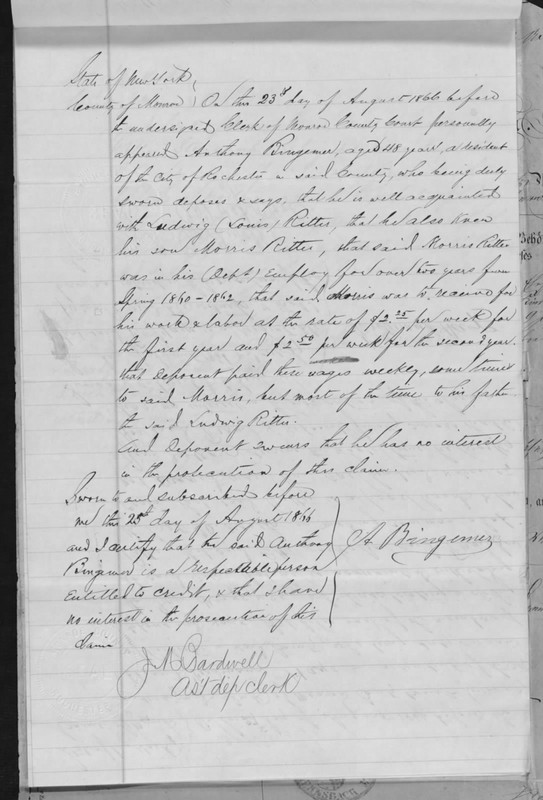 State of New York
County of Monroe } On this 23d day of August 1866 before
the undersigned Clerk of Monroe County Court personally
appeared Anthony Bingemer, aged 48 years, a resident
of the City of Rochester in said County, who being duly
sworn deposes & says, that he is well acquainted
with Ludwig (Louis) Ritter, that he also knew
his son Morris Ritter, that said Morris Ritter
was in his (Depts) Employ for over two years from
Spring 1860-1862, that said Morris was to receive for
his work & labor at the rate of $2.25 per week for
the first year and $2.50 per week for the second year.
that Deponent paid these wages weekly, some times
to said Morris, but most of the time to his father
the said Ludwig Ritter.
And Deponent swears that he has no interest
in the prosecution of this claim.
Sworn to and subscribed before
me this 25th day of August 1866
and I certify that the said Anthony
Bingemer is a respectable person
entitled to credit, & that I have
no interest in the prosecution of this
claim
A Bingemer
J M Bardwell
Ast dep clerk